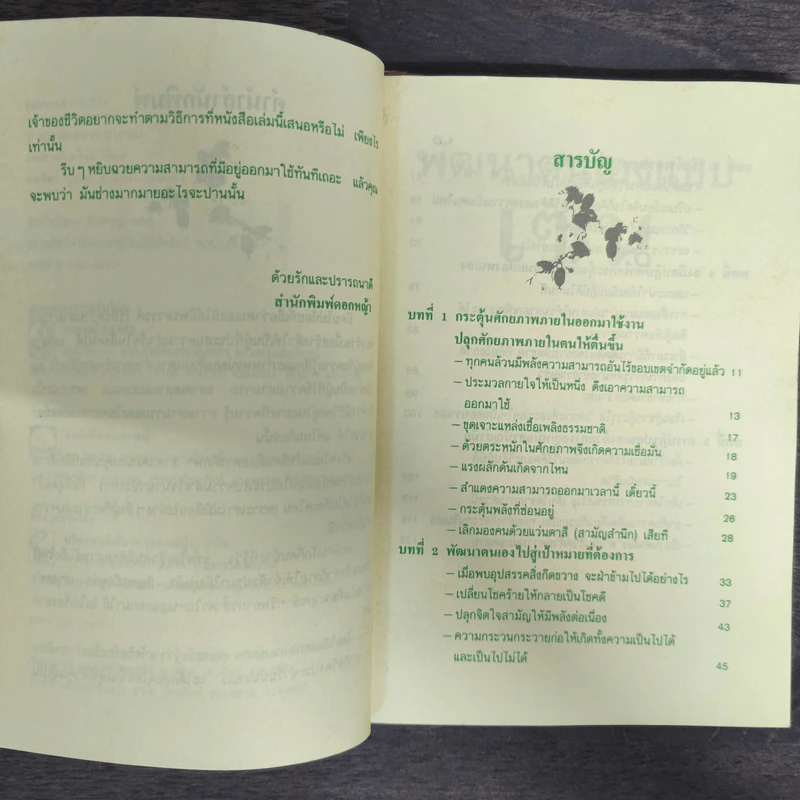 เจ้าของชีวิตอยากจะทำตามวิธีการที่หนังสือเล่มนี้เสนอหรือไม่ เพียงไร
เท่านั้น
รีบๆ หยิบฉวยความสามารถที่มีอยู่ออกมาใช้ทันทีเถอะ แล้วคุณ
จะพบว่า มันช่างมากมายอะไรจะปานนั้น
ด้วยรักและปรารถนาดี
สำนักพิมพ์ดอกหญ้า
สารบัญ
บทที่ 1 กระตุ้นศักยภาพภายในออกมาใช้งาน
ปลุกศักยภาพภายในตนให้ตื่นขึ้น
– ทุกคนล้วนมีพลังความสามารถอันไร้ขอบเขตจำกัดอยู่แล้ว 11
– ประมวลกายใจให้เป็นหนึ่ง ดึงเอาความสามารถ
ออกมาใช้ 13
– ขุดเจาะแหล่งเชื้อเพลิงธรรมชาติ 17
– ด้วยตระหนักในศักยภาพจึงเกิดความเชื่อมั่น 18
– แรงผลักดันเกิดจากไหน 19
– สำแดงความสามารถออกมาเวลานี้ เดี๋ยวนี้ 23
– กระตุ้นพลังที่ซ่อนอยู่ 26
– เลิกมองคนด้วยแว่นตาสี (สามัญสำนึก) เสียที 28
บทที่ 2 พัฒนาตนเองไปสู่เป้าหมายที่ต้องการ
– เมื่อพบอุปสรรคสิ่งกีดขวาง จะฝ่าข้ามไปได้อย่างไร 33
– เปลี่ยนโชคร้ายให้กลายเป็นโชคดี 37
– ปลุกจิตใจสามัญให้มีพลังต่อเนื่อง 43
– ความกระวนกระวายก่อให้เกิดทั้งความเป็นไปได้
และเป็นไปไม่ได้ 45